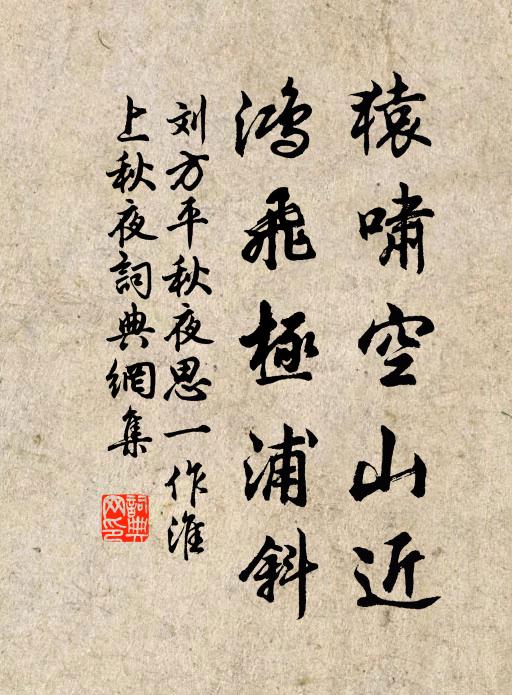 猿嘯空山近
鴻飛極浦斜
刘方平秋夜思一作淮
上秋夜詞典網集
詞典
网印